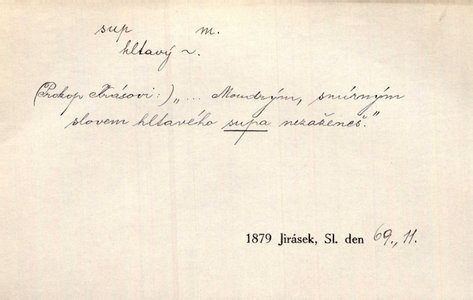 sup m.
hltavý ~.
(Prokop Trásovi:) „... Moudrým, smírným
slovem hltavého supa nezaženeš."
1879 Jirásek, Sl. den 69., 11.